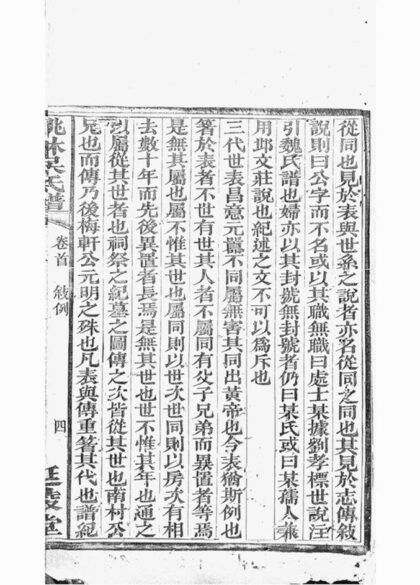 從同也見於表與世系之說者亦名從同之同也其見於志傳敍
說則曰公字而不名或以其職無職曰處士某據劉孝標世說注
引魏氏譜也婦亦以其封號無封號者仍曰某氏或曰某孺人兼
用邱文莊說也紀述之文不可以為斥也
三代世表昌意元囂不同屬無害其同出黃帝也今表猶斯例也
箸於表者不世有世其人者不屬同有父子兄弟而異置者等焉
是無其屬也屬不惟其世也屬同則以世次世同則以房次有相
去數十年而先後異置者長焉是無其世也世不惟其年也通之
以屬從其世者也祠祭之紀墓之圖傳之次皆從其世也南村公
兄也而傳乃後梅軒公元明之殊也凡表與傳重箸其代也譜紀
洮林吳氏譜
卷首
敍例
四
延陵堂